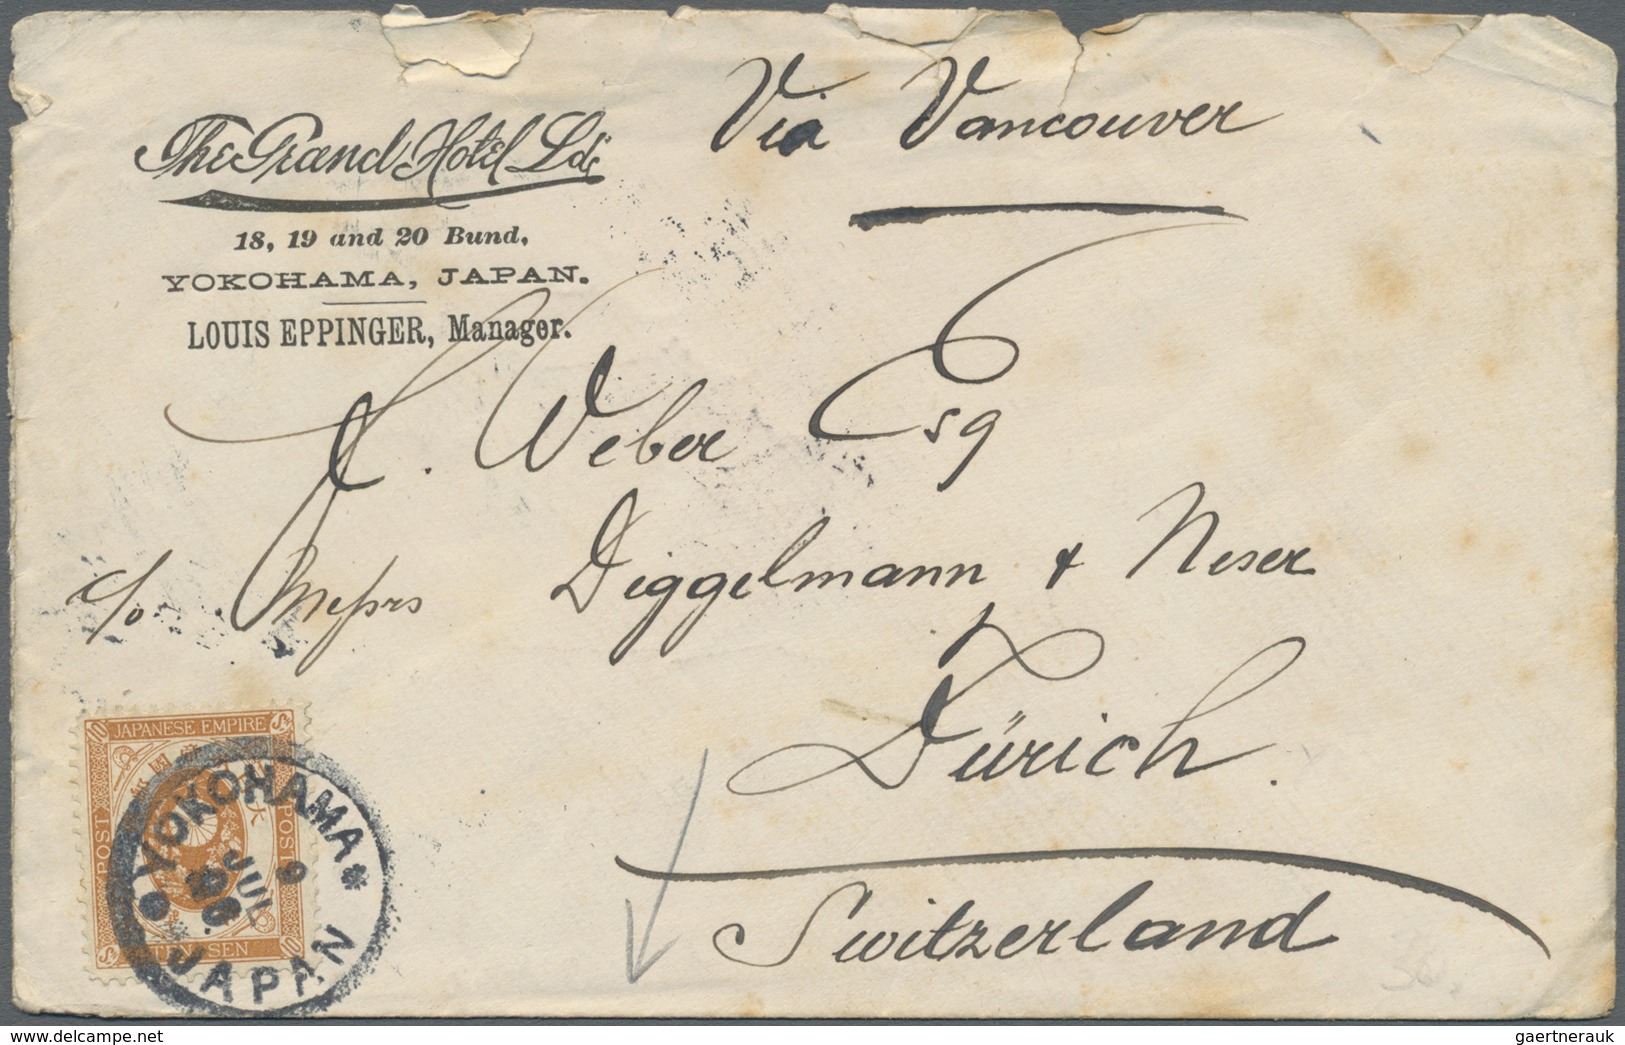 Via Vancouver
The Grand Hotel Ld.
18, 19 and 20 Bund,
YOKOHAMA, JAPAN.
LOUIS EPPINGER, Manager.
. Weber Esq
c/o. Messrs Diggelmann & Neser
Zürich.
Switzerland
JAPANESE EMPIRE
10 10
POST POST
TEN SEN
YOKOHAMA
JUN
JAPAN
delcampe.net
gaertnerauk